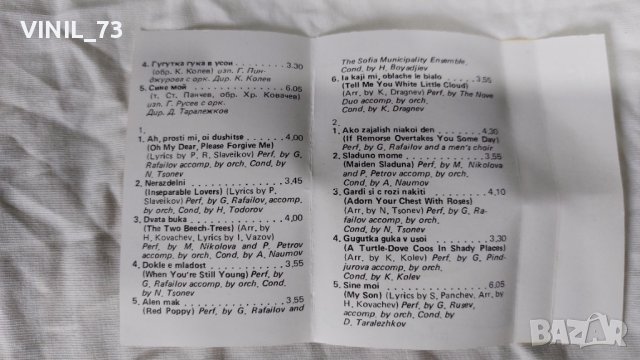 VINIL_73
4. Гугутка гука в усои . . . . . . 3,30
(обр. К. Колев) изп. Г. Пин-
джурова с орк. Дир. К. Колев
5. Сине мой . . . . . . . . . . 6,05
(т. Ст. Панчев, обр. Хр. Ковачев)
изп. Г. Русев с орк.
Дир. Д. Таралежков
1.
1. Ah, prosti mi, oi dushitse . . . 4,00
(Oh My Dear, Please Forgive Me)
(Lyrics by P. R. Slaveikov) Perf. by G.
Rafailov accomp. by orch. Cond. by
N. Tsonev
2. Nerazdelni . . . . . . . . . 3,45
(Inseparable Lovers) (Lyrics by P.
Slaveikov) Perf. by G. Rafailov, accomp.
by orch, Cond. by H. Todorov
3. Dvata buka . . . . . . . . . 4,00
(The Two Beech-Trees) (Arr. by
H. Kovachev, Lyrics by I. Vazov)
Perf. by M. Nikolova and P. Petrov
accomp. by orch, Cond. by A. Naumov
4. Dokle e mladost . . . . . . . 3,55
(When You're Still Young) Perf. by
G. Rafailov accomp. by orch. Cond.
by N. Tsonev
5. Alen mak . . . . . . . . . . 3,55
(Red Poppy) Perf. by G. Rafailov and
The Sofia Municipality Ensemble,
Cond. by H. Boyadjiev
6. Ia kaji mi, oblache le bialo . . . 3,55
(Tell Me You White Little Cloud)
(Arr. by K. Dragnev) Perf. by The Nove
Duo accomp. by orch,
Cond. by K. Dragnev
2.
1. Ako zajalish niakoi den . . . . . 4,30
(If Remorse Overtakes You Some Day)
Perf. by G. Rafailov and a men's choir
2. Sladuno mome . . . . . . . . 3,55
(Maiden Sladuna) Perf. by M. Nikolova
and P. Petrov accomp. by orch.
Cond. by A. Naumov
3. Gardi si c rozi nakiti . . . . . 4,10
(Adorn Your Chest With Roses)
(Arr. by N. Tsonev) Perf. by G. Ra-
failov accomp. by orch.
Cond. by N. Tsonev
4. Gugutka guka v usoi . . . . . . 3,30
(A Turtle-Dove Coos In Shady Places)
(Arr. by K. Kolev) Perf. by G. Pind-
jurova accomp. by orch,
Cond. by K. Kolev
5. Sine moi . . . . . . . . . . 6,05
(My Son) (Lyrics by S. Panchev, Arr. by
H. Kovachev) Perf. by G. Rusev,
accomp. by orch, Cond. by
D. Taralezhkov
BAZAR
bg